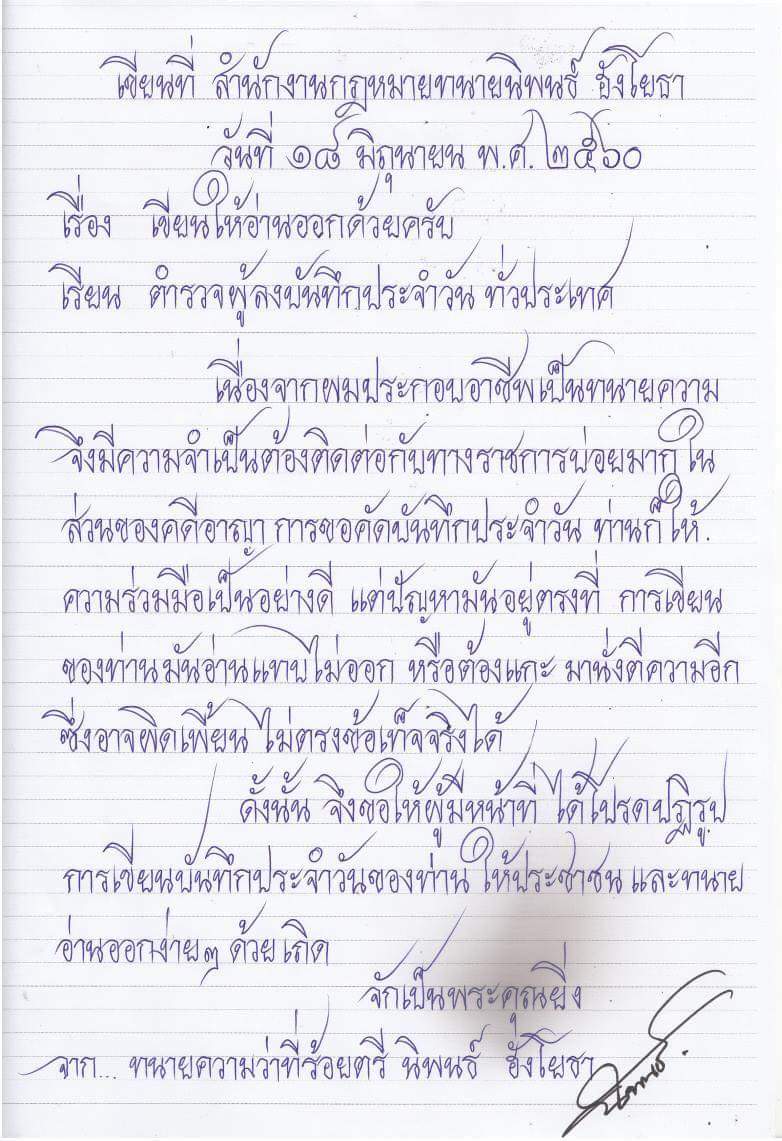 เขียนที่ สำนักงานกฎหมายทนายนิพนธ์ ฮังโยธา
วันที่ ๑๘ มิถุนายน พ.ศ. ๒๕๖๐
เรื่อง เขียนให้อ่านออกด้วยครับ
เรียน ตำรวจผู้ลงบันทึกประจำวัน ทั่วประเทศ
เนื่องจากผมประกอบอาชีพเป็นทนายความ
จึงมีความจำเป็นต้องติดต่อกับทางราชการบ่อยมาก ใน
ส่วนของคดีอาญา การขอคัดบันทึกประจำวัน ท่านก็ให้.
ความร่วมมือเป็นอย่างดี แต่ปัญหามันอยู่ตรงที่ การเขียน
ของท่านมันอ่านแทบไม่ออก หรือต้องแกะ มานั่งตีความอีก
ซึ่งอาจผิดเพี้ยน ไม่ตรงข้อเท็จจริงได้
ดั้งนั้น จึงขอให้ผู้มีหน้าที่ ได้โปรดปฏิรูป
การเขียนบันทึกประจำวันของท่าน ให้ประชาชน และทนาย
อ่านออกง่ายๆ ด้วยเถิด
จักเป็นพระคุณยิ่ง
จาก... ทนายความว่าที่ร้อยตรี นิพนธ์ ฮังโยธา